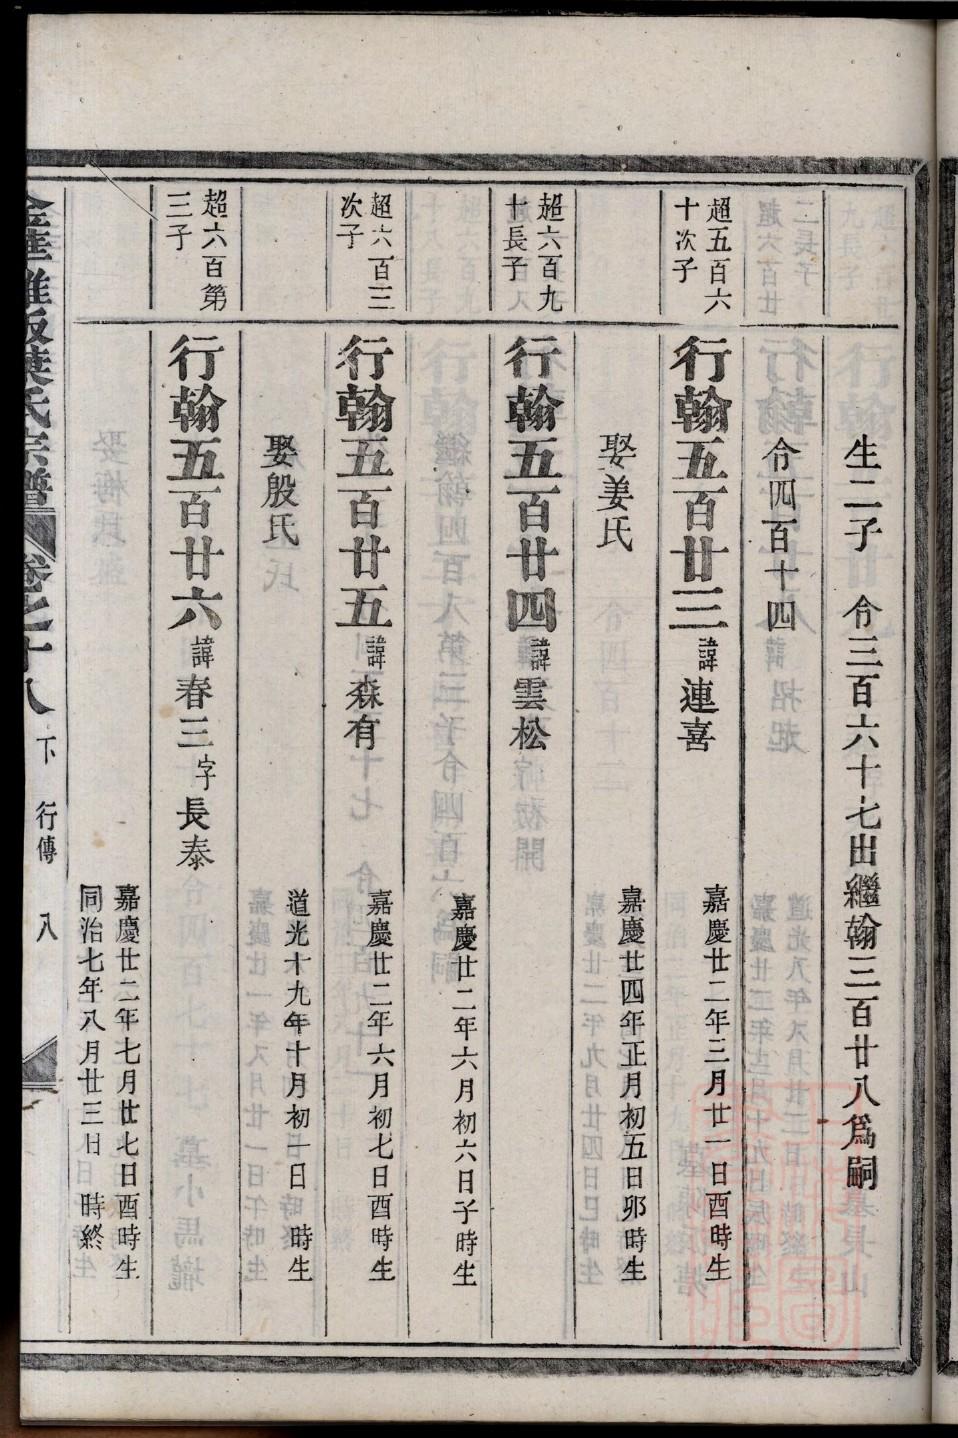 生二子 令三百六十七出繼翰三百廿八爲嗣
令四百十四
超五百六
十次子
行翰五百廿三 諱 連喜
嘉慶廿二年三月廿一日酉時生
娶姜氏
嘉慶廿四年正月初五日卯時生
超六百九
十長子
行翰五百廿四 諱 雲松
嘉慶廿二年六月初六日子時生
超六百三
次子
行翰五百廿五 諱 森有
嘉慶廿二年六月初七日酉時生
娶殷氏
道光十九年十月初一日 時生
超六百第
三子
行翰五百廿六 諱 春三 字 長泰
嘉慶廿二年七月廿七日酉時生
同治七年八月廿三日 時終
葉氏宗譜 卷之十八 下 行傳 八